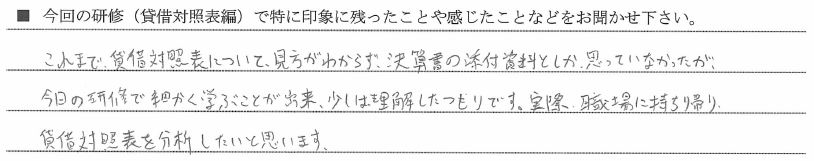 ■ 今回の研修（貸借対照表編）で特に印象に残ったことや感じたことなどをお聞かせ下さい。
これまで、貸借対照表について、見方がわからず、決算書の添付資料としか思っていなかったが、
今日の研修で細かく学ぶことが出来、少しは理解したつもりです。実際、職場に持ち帰り、
貸借対照表を分析したいと思います。